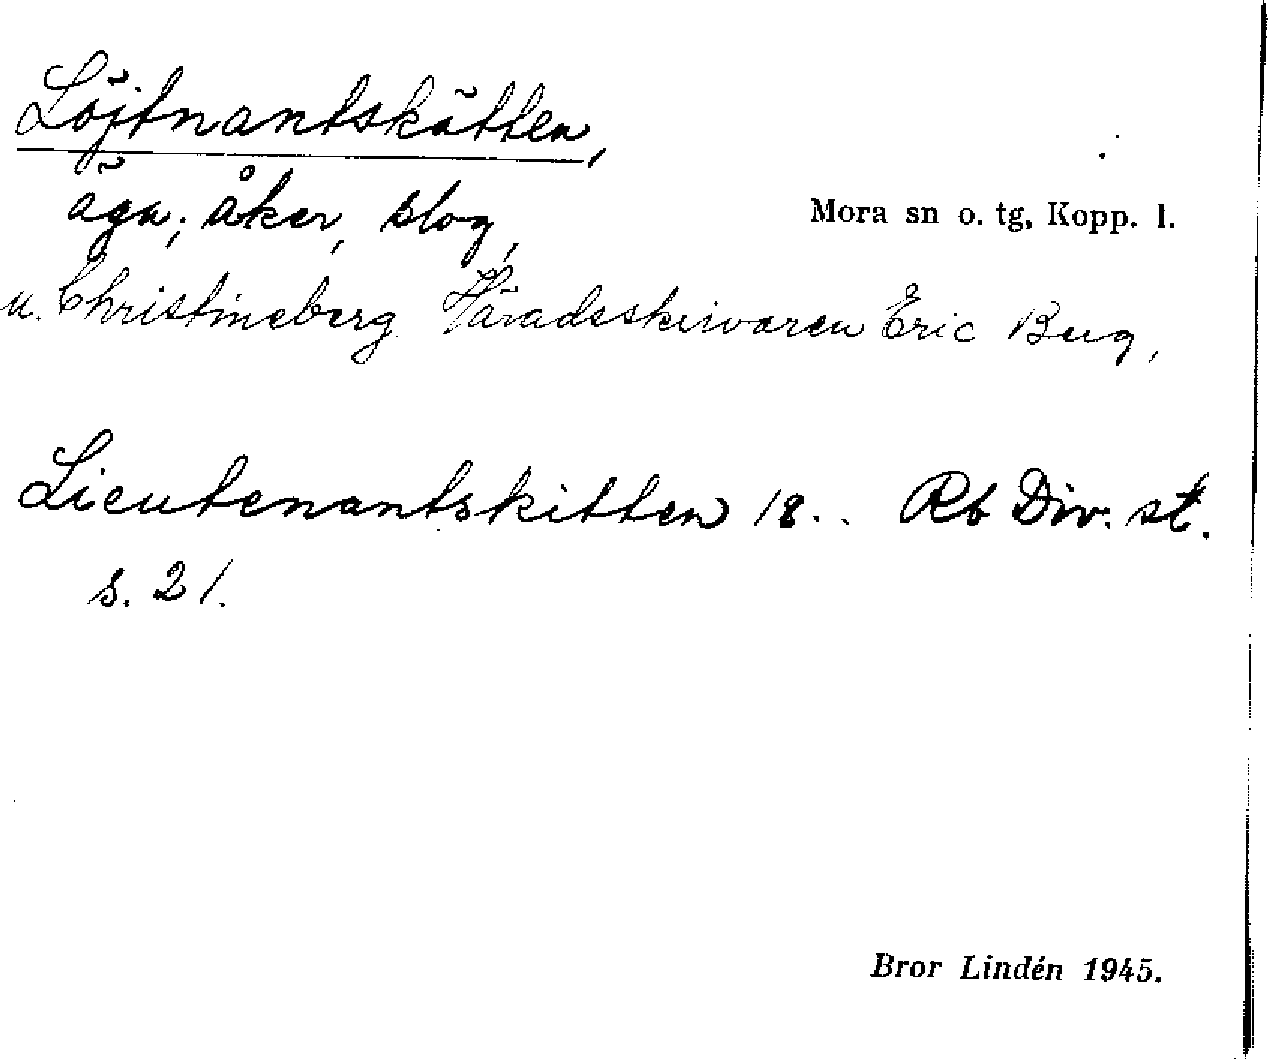 Löjtnantskätten,
äga; åker, slog,
Mora sn o. tg, Kopp. l.
u. Christineberg. Häradsskrivaren Eric Berg,
Lieutenantskitten 18.. Rb Div. st.
s. 21.
Bror Lindén 1945.